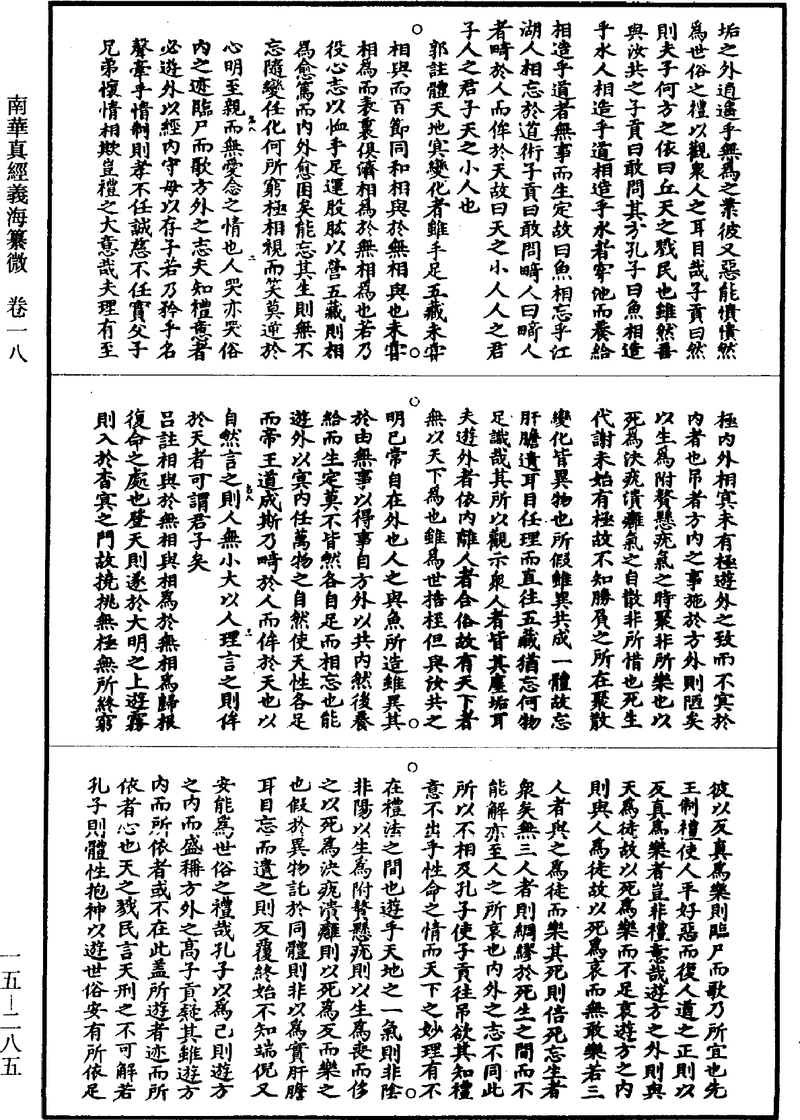 南華真經義海纂微 卷一八
一五—二八五
垢之外逍遙乎無為之業彼又惡能憒憒然
為世俗之禮以觀衆人之耳目哉子貢曰然
則夫子何方之依曰丘天之戮民也雖然吾
與汝共之子貢曰敢問其方孔子曰魚相造
乎水人相造乎道相造乎水者穿池而養給
相造乎道者無事而生定故曰魚相忘乎江
湖人相忘於道術子貢曰敢問畸人曰畸人
者畸於人而侔於天故曰天之小人人之君
子人之君子天之小人也
郭註體天地冥變化者雖手足五藏未甞
相與而百節同和相與於無相與也未甞
相為而表裏俱濟相為於無相為也若乃
役心志以恤手足運股肱以營五藏則相
為愈篤而內外愈困矣能忘其生則無不
忘隨變任化何所窮極相視而笑莫逆於
心明至親而無愛念之情也人哭亦哭俗
內之迹臨尸而歌方外之志夫知禮意者
必遊外以經內守母以存子若乃矜乎名
聲牽乎情制則孝不任誠慈不任實父子
兄弟懷情相欺豈禮之大意哉夫理有至
極內外相冥未有極遊外之致而不冥於
內者也吊者方內之事施於方外則陋矣
以生為附贅懸疣氣之時聚非所樂也以
死為決疣潰癰氣之自散非所惜也死生
代謝未始有極故不知勝負之所在聚散
變化皆異物也所假雖異共成一體故忘
肝膽遺耳目任理而直往五藏猶忘何物
足識哉其所以觀示衆人者皆其塵垢耳
夫遊外者依內離人者合俗故有天下者
無以天下為也雖為世捨桎但與汝共之
明已常自在外也人之與魚所造雖異其
於由無事以得事自方外以共內然後養
給而生定莫不皆然各自足而相忘也能
遊外以冥內任萬物之自然使天性各足
而帝王道成斯乃畸於人而侔於天也以
自然言之則人無小大以人理言之則侔
於天者可謂君子矣
呂註相與於無相與相為於無相為歸根
復命之處也登天則遂於大明之上遊霧
則入於杳冥之門故撓挑無極無所終窮
彼以反真為樂則臨尸而歌乃所宜也先
王制禮使人平好惡而復人道之正則以
反真為樂者豈非禮意哉遊方之外則與
天為徒故以死為樂而不足哀遊方之內
則與人為徒故以死為哀而無敢樂若三
人者與之為徒而樂其死則倍死忘生者
衆矣無三人者則綢繆於死生之間而不
能解亦至人之所哀也內外之志不同此
所以不相及孔子使子貢往吊欲其知禮
意不出乎性命之情而天下之妙理有不
在禮法之間也遊乎天地之一氣則非陰
非陽以生為附贅懸疣則以生為喪而侈
之以死為決疣潰癰則以死為反而樂之
也假於異物託於同體則非以為實肝膽
耳目忘而遺之則反覆終始不知端倪又
安能為世俗之禮哉孔子以為已則遊方
之內而盛稱方外之高子貢疑其雖遊方
內而所依者或不在此蓋所遊者迹而所
依者心也天之戮民言天刑之不可解若
孔子則體性抱神以遊世俗安有所依足